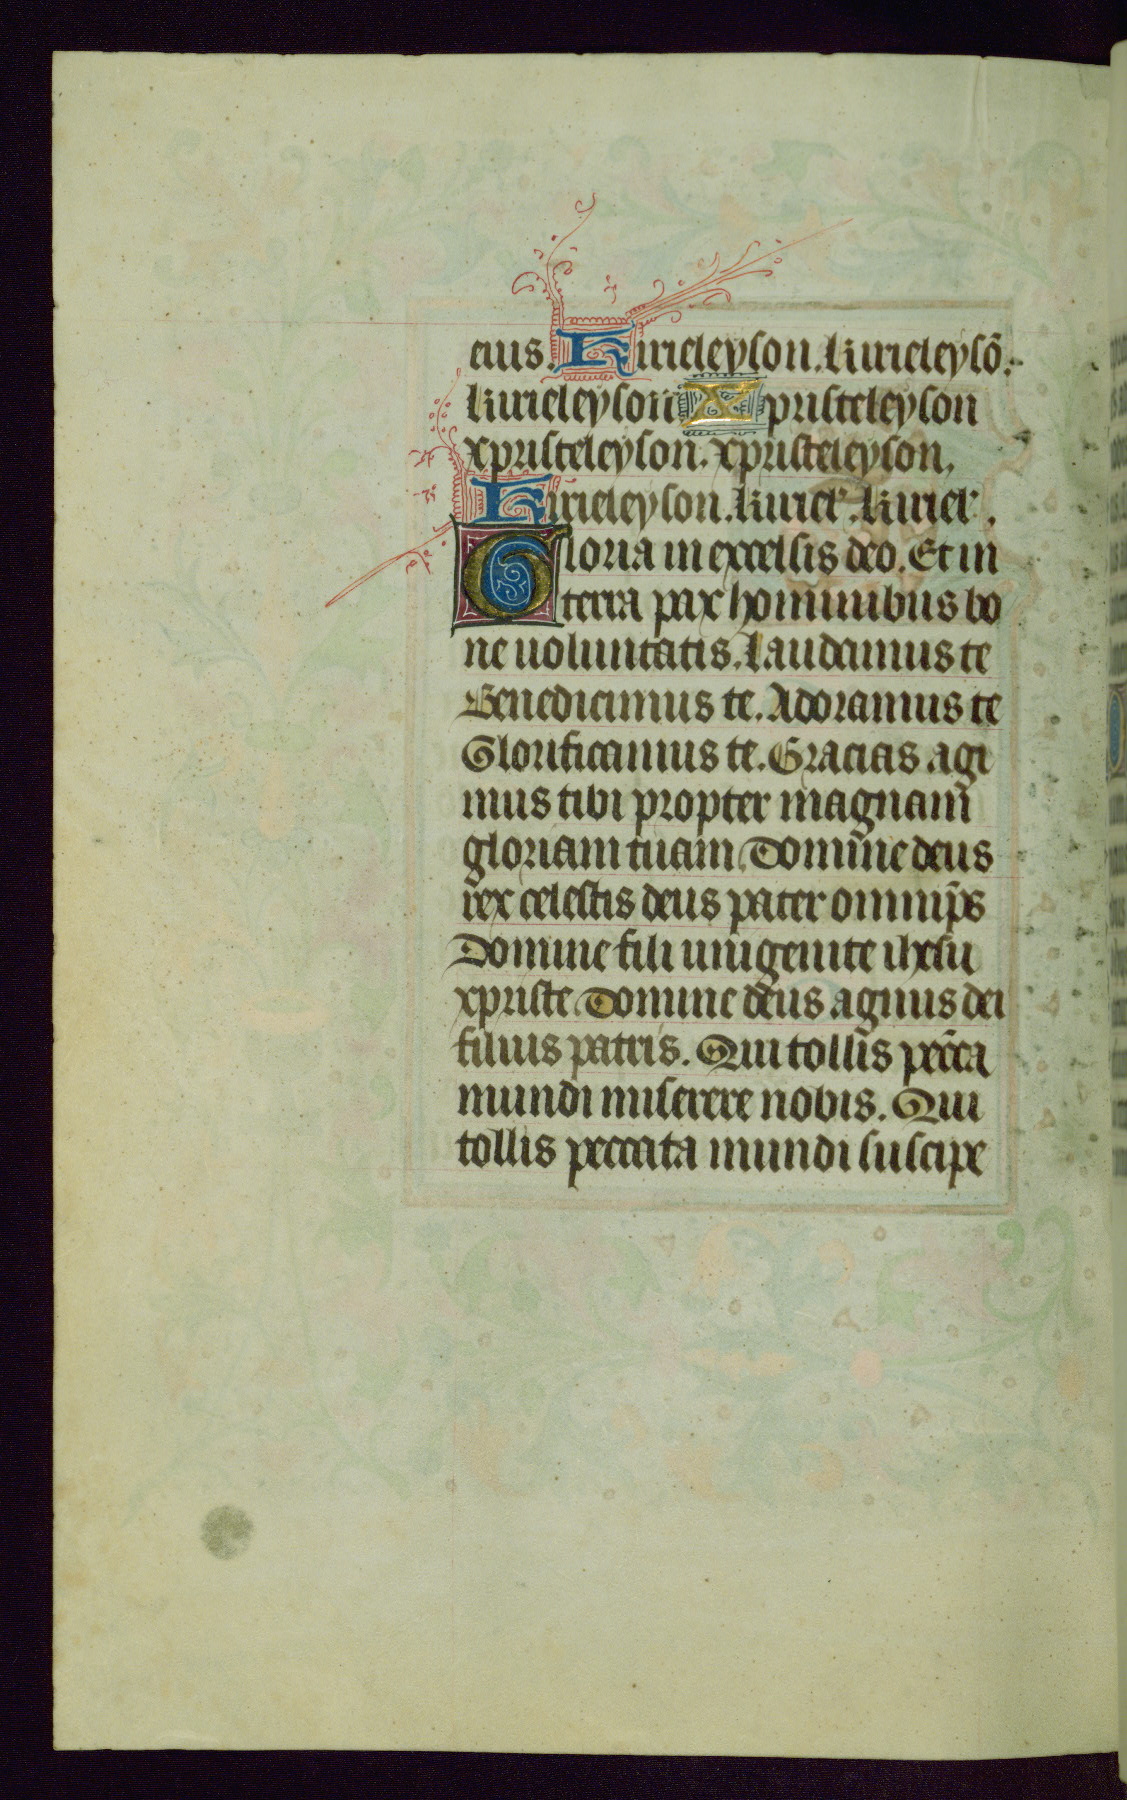 eius. Kirieleyson. kirieleysō.
kirieleyson Xpristeleyson
xpristeleyson. xpristeleyson.
Kirieleyson. kiriel'. kiriel'.
Gloria in excelsis deo. Et in
terra pax hominibus bo
ne uoluntatis. Laudamus te
Benedicimus te. Adoramus te
Glorificamus te. Gracias agi
mus tibi propter magnam
gloriam tuam. Domine deus
rex celestis deus pater omnip̄s
Domine fili unigenite ihesu
xpriste. Domine deus agnus dei
filius patris. Qui tollis pcc̄a
mundi miserere nobis. Qui
tollis peccata mundi suscipe